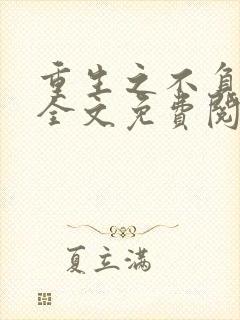 重生之不负
全文免費閱
夏立满